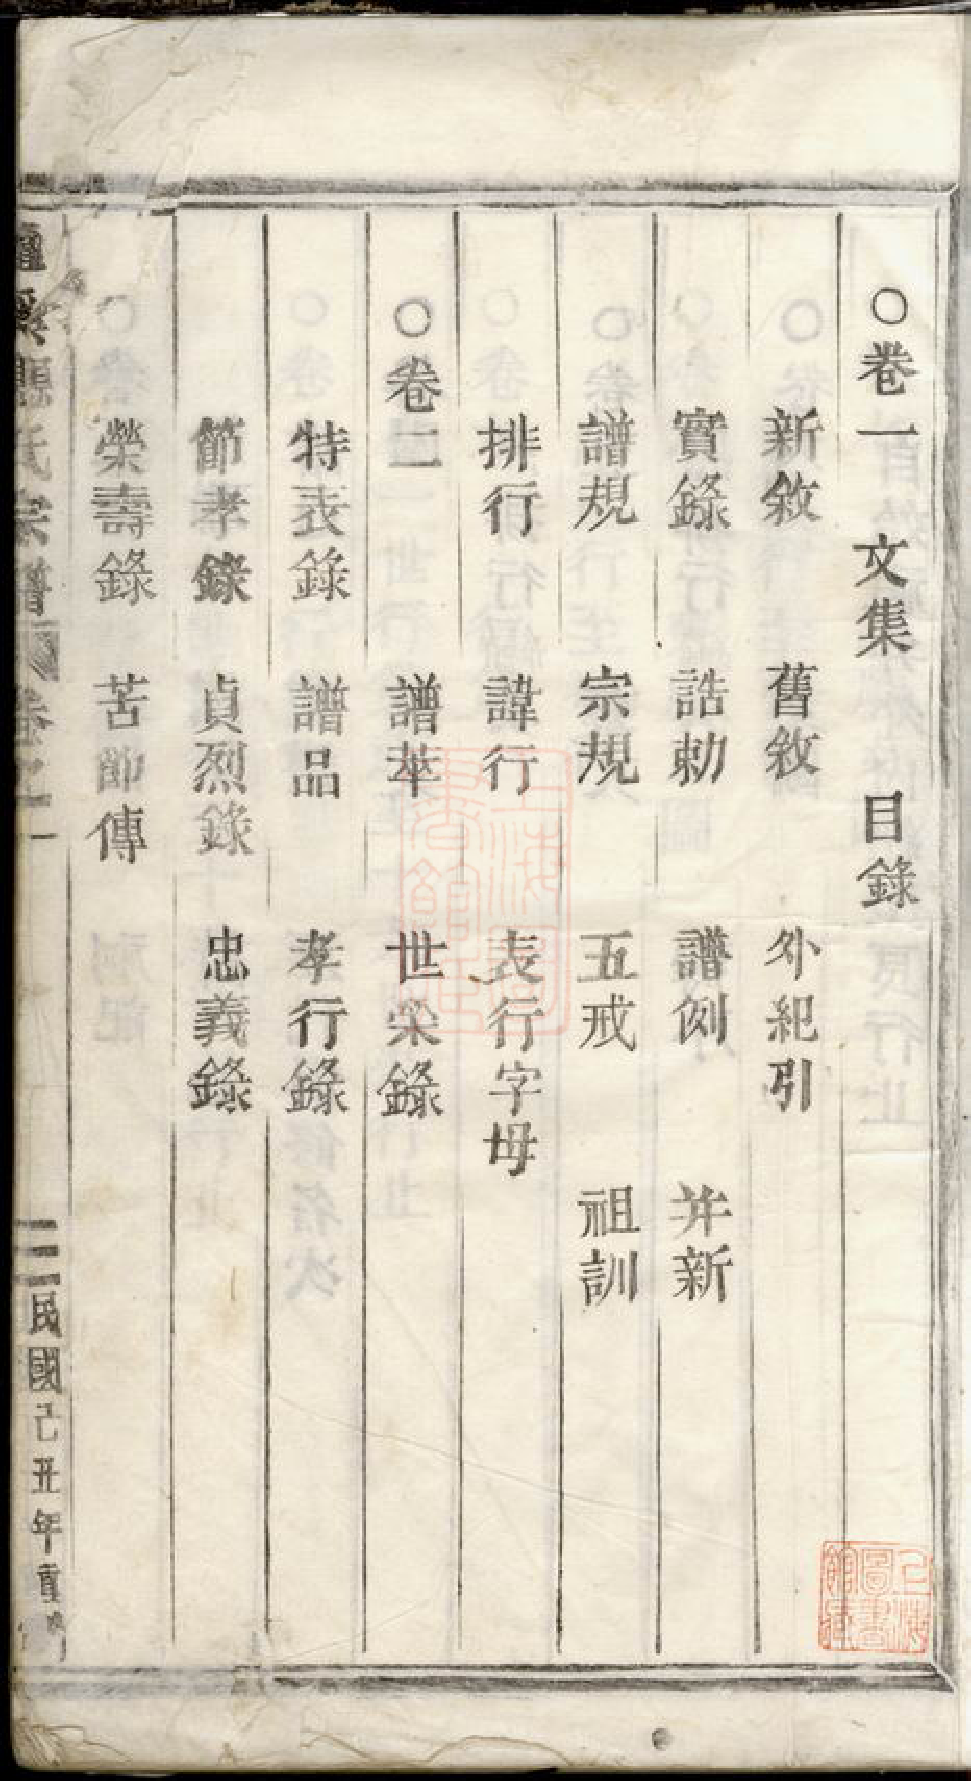 ○卷一　文集　目錄
新敘　舊敘　外紀引
實錄　誥勅　譜例　并新
譜規　宗規　五戒　祖訓
排行　諱行　表行字母
○卷二　譜萃　世榮錄
特表錄　譜品　孝行錄
節孝錄　貞烈錄　忠義錄
榮壽錄　苦節傳
氏宗譜　卷之一　民國己丑年重
上海圖書館藏
上海圖書館藏